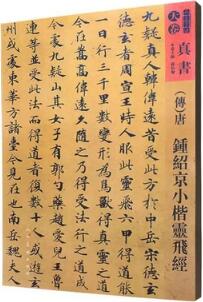 大卷
真書
(傳)唐 鍾紹京小楷靈飛經
九疑真人韓偉遠昔受此方於中岳宋德玄
德玄者周宣王時人服此靈飛六甲得道能
一日行三千里數變形為鳥獸得真靈之道
今在嵩高偉遠久隨之乃得受法行之道成
今處九疑山其女子有郭芍藥趙愛兒王魯
連等並受此法而得道者復數十人或遊玄
州或處東華方諸臺今見在也南岳魏夫人